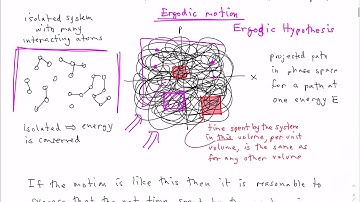 Ergodic motion
isolated system
with many
interacting atoms
P
Ergodic Hypothesis
projected path
in phase space
for a path at
one energy E
x
Isolated ⇒ energy
is conserved
time spent by the system
in this volume, per unit
volume, is the same as
for any other volume
If the motion is like this then it is reasonable to